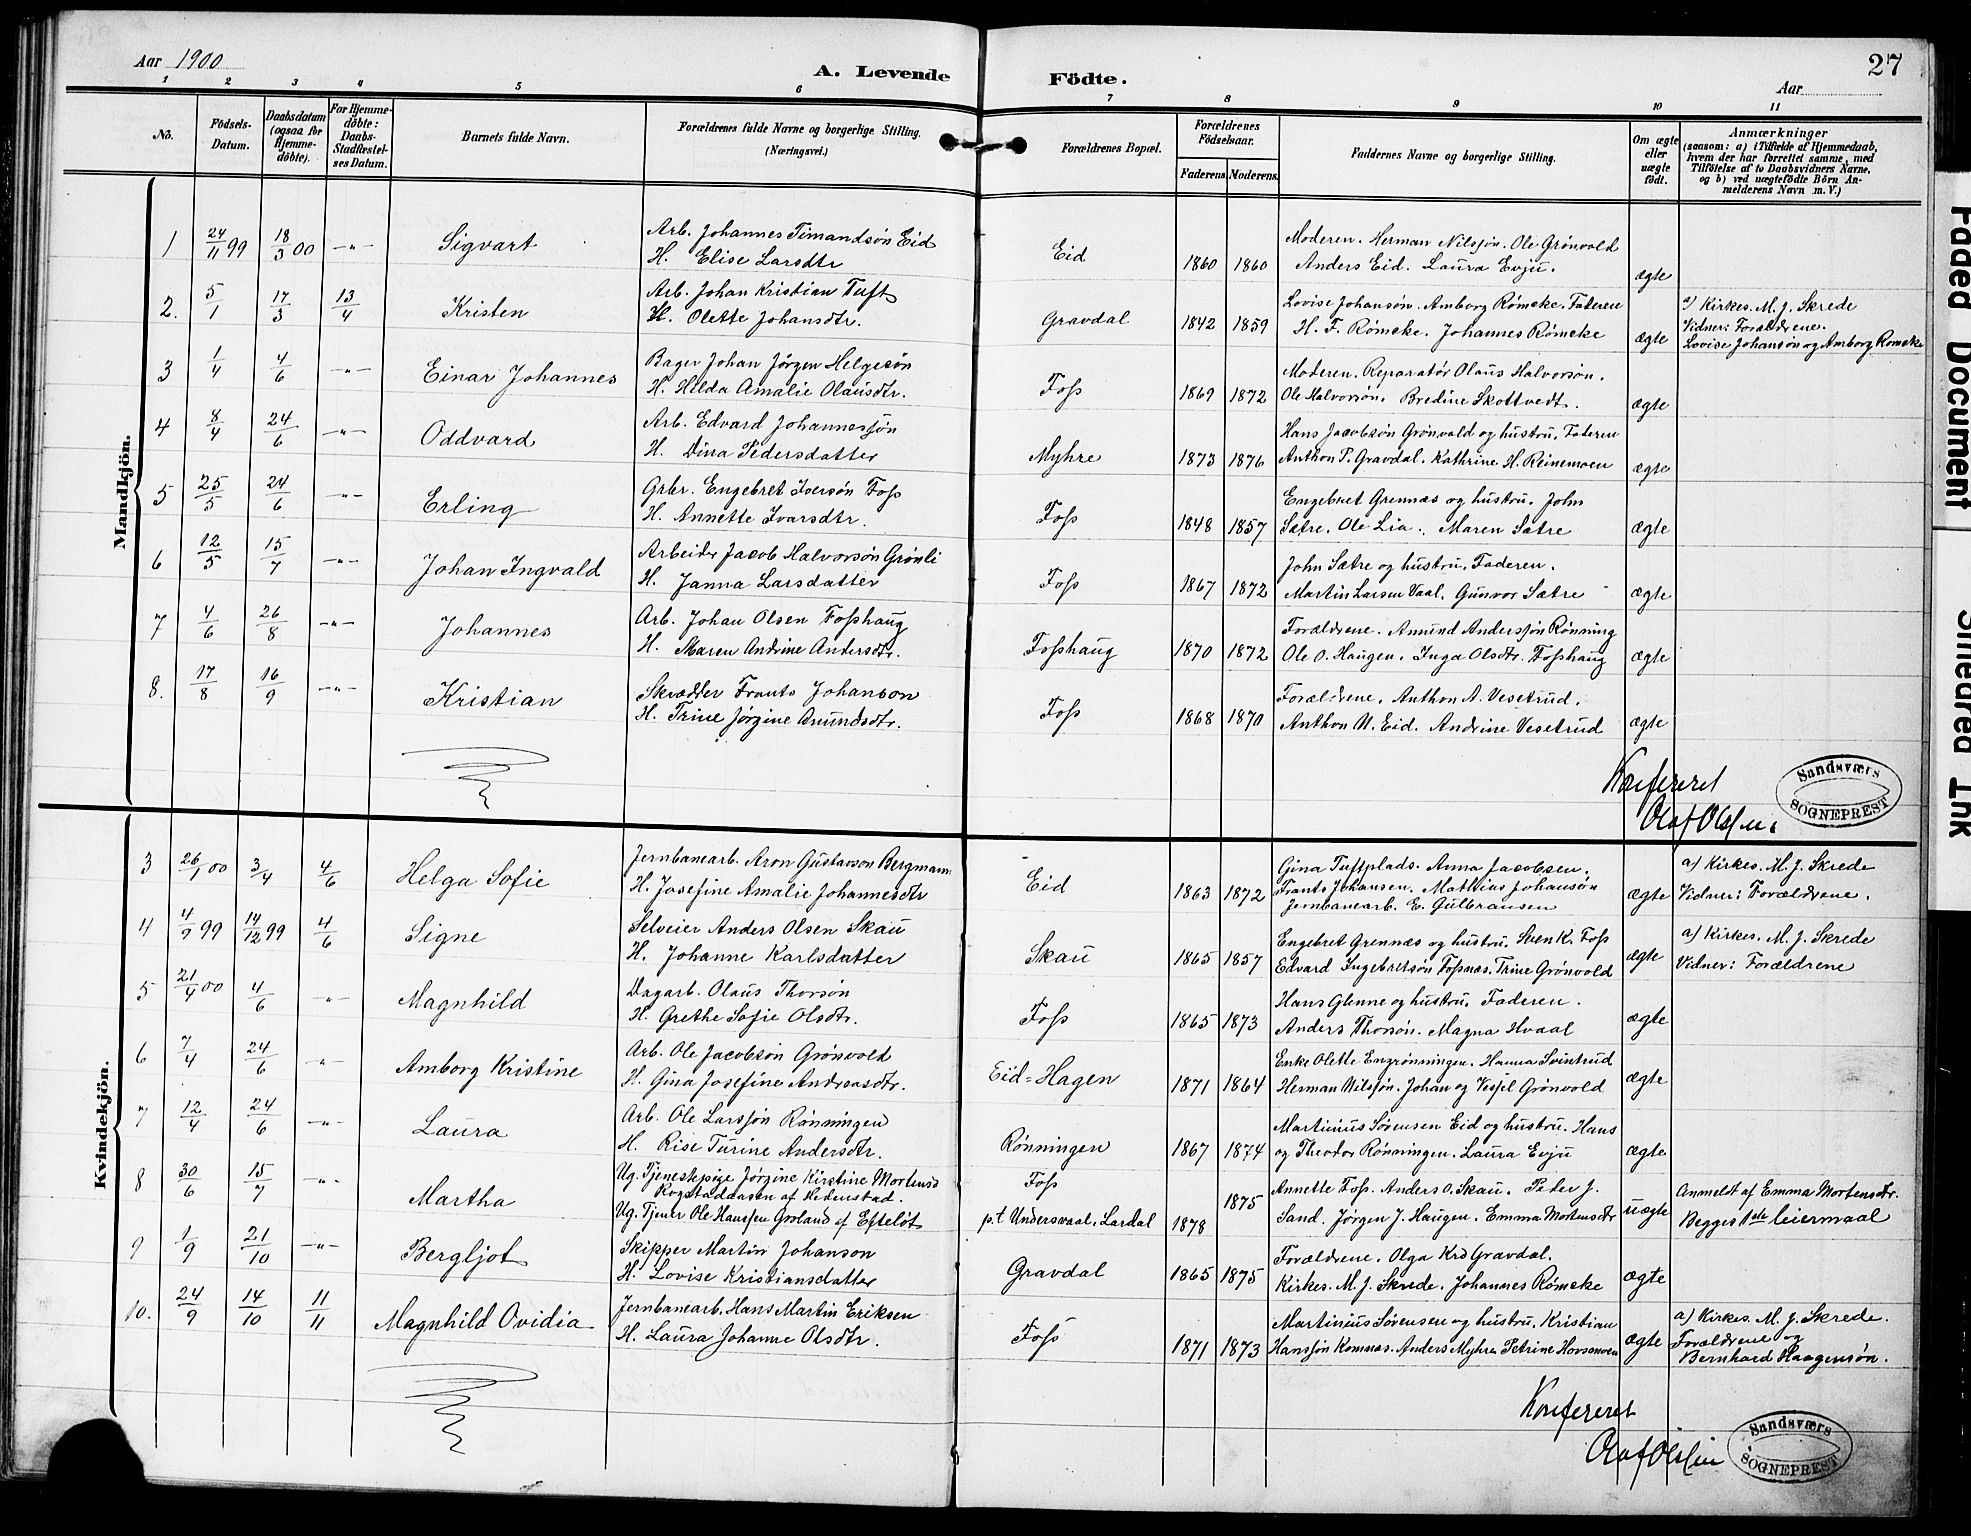 Aar 1900
A. Levende Födte.
Aar
27
1 2 3 4 5 6 7 8 9 10 11
No.
Födsels-Datum.
Daabsdatum (ogsaa for Hjemme-döbte).
For Hjemme-döbte: Daabs-Stadfæstel-ses Datum.
Barnets fulde Navn.
Forældrenes fulde Navne og borgerlige Stilling. (Næringsvei.)
Forældrenes Bopæl.
Forældrenes Födselsaar.
Faderens. Moderens.
Faddernes Navne og borgerlige Stilling.
Om ægte eller uægte födt.
Anmærkninger
(saasom: a) i Tilfælde af Hjemmedaab,
hvem der har forrettet samme, med
Tilföielse af to Daabsvidners Navne,
og b) ved uægtefödte Börn An-
melderens Navn m. V.)
Mandkjön.
1 24/11 99 18/3 00 -"- Sigvart
Arb. Johannes Timandsøn Eid
H. Elise Larsdtr
Eid 1860 1860
Moderen. Herman Nilsjøn. Ole Grønvold
Anders Eid. Laura Evju.
ægte
2. 5/1 17/3 13/4 Kristen
Arb. Johan Kristian Tuft
H. Olette Johansdtr.
Gravdal 1842 1859
Lovise Johansøn. Amborg Rømcke. Faderen
H. F. Rømcke. Johannes Rømcke
ægte
a) Kirkes. M. J. Skrede
Vidner: Forældrene.
Lovise Johansøn og Amborg Romcke
3 1/4 4/6 -"- Einar Johannes
Bager Johan Jørgen Helgesøn
H. Hilda Amalie Olausdtr.
Foss 1869 1872
Moderen. Reparatør Olaus Halvorsøn.
Ole Halvorsøn. Bredine Skottvedt.
ægte
4 8/4 24/6 -"- Oddvard
Arb. Edvard Johannessøn
H. Dina Pedersdatter
Myhre 1873 1876
Hans Jacobsøn Grønvald og hustru. Faderen
Anthon P. Gravdal. Kathrine H. Reinemoen
ægte
5 25/5 24/6 -"- Erling
Grbr. Engebret Iversøn Foss
H. Annette Ivarsdtr.
Foss 1848 1857
Engebret Grennæs og hustru. John
Sætre. Ole Lia. Maren Sætre
ægte
6 12/5 15/7 -"- Johan Ingvald
Arbeider Jacob Halvorsøn Grønli
H. Janna Larsdatter
Foss 1867 1872
John Sætre og hustru. Faderen.
Martin Larsen Vaal. Gunvor Sætre
ægte
7 4/6 26/8 -"- Johannes
Arb. Johan Olsen Fosshaug
H. Maren Andrine Andersdtr.
Fosshaug 1870 1872
Forældrene. Amund Anderssøn Rønning
Ole O. Haugen. Inga Olsdtr. Fosshaug
ægte
8. 17/8 16/9 -"- Kristian
Skrædder Frants Johanson
H. Trine Jørgine Amundsdtr.
Foss 1868 1870
Forældrene. Anthon A. Vesetrud.
Anthon N. Eid. Andrine Vesetrud
ægte
Konfereret
Olaf Olssen.
Sandsværs
SOGNEPREST
Kvindekjön.
3 26/1 00 3/4 4/6 Helga Sofie
Jernbanearb. Aron Gustavson Bergmann
H. Josefine Amalie Johannesdtr
Eid 1863 1872
Gina Tuftplads. Anna Jacobsen.
Frants Johansen. Mathias Johansøn
Jernbanearb. E. Gulbransen
ægte
a) Kirkes. M. J. Skrede
Vidner: Forældrene.
4 4/9 99 14/12 99 4/6 Signe
Selveier Anders Olsen Skau
H. Johanne Karlsdatter
Skau 1865 1857
Engebret Grennæs og hustru. Sven K. Foss
Edvard Ingebretsøn Fossnæs. Trine Grønvold
ægte
a) Kirkes. M. J. Skrede
Vidner: Forældrene
5 21/4 00 4/6 -"- Magnhild
Dagarb. Olaus Thorsøn
H. Grethe Sofie Olsdtr.
Foss 1865 1873
Hans Glenne og hustru. Faderen.
Anders Thorsøn. Magna Hvaal
ægte
6 7/4 24/6 -"- Amborg Kristine
Arb. Ole Jacobsøn Grønvold
H. Gina Josefine Andreasdtr.
Eid-Hagen 1871 1864
Enke Olette Engrønningen. Hanna Svintrud
Herman Nilssøn. Johan og Vessel Grønvold
ægte
7 12/4 24/6 -"- Laura
Arb. Ole Larssøn Rønningen
H. Rise Turine Andersdtr.
Rønningen 1867 1874
Martinius Sørensen Eid og hustru. Hans
og Theodor Rønningen. Laura Evju
ægte
8 30/6 15/7 -"- Martha
Ug. Tjenestepige Jørgine Kirstine Mortensd
af Hedenstad.
Ug. Tjener Ole Hanssen Groland af Efteløt
Foss
p.t Undersvaal, Lardal 1878 1875
Annette Foss. Anders O. Skau. Peder J.
Sand. Jørgen J. Haugen. Emma Mortensdtr
uægte
Anmeldt af Emma Mortensdtr.
Begges 1ste leiermaal
9 1/9 21/10 -"- Bergljot
Skipper Martin Johanson
H. Lovise Kristiansdatter
Gravdal 1865 1875
Forældrene. Olga Krd Gravdal.
Kirkes. M. J. Skrede. Johannes Rømcke
ægte
10. 24/9 14/10 11/11 Magnhild Ovidia
Jernbanearb. Hans Martin Eriksen
H. Laura Johanne Olsdtr.
Foss 1871 1873
Martinius Sørensen og hustru. Kristian
Hanssøn Komnæs. Anders Myhre Petrine Hovsmoen
ægte
a) Kirkes. M. J. Skrede.
Forældrene og
Bernhard Haagensøn.
Konfereret
Olaf Olssen
Sandsværs
SOGNEPREST
Faded Document
Smeared Ink